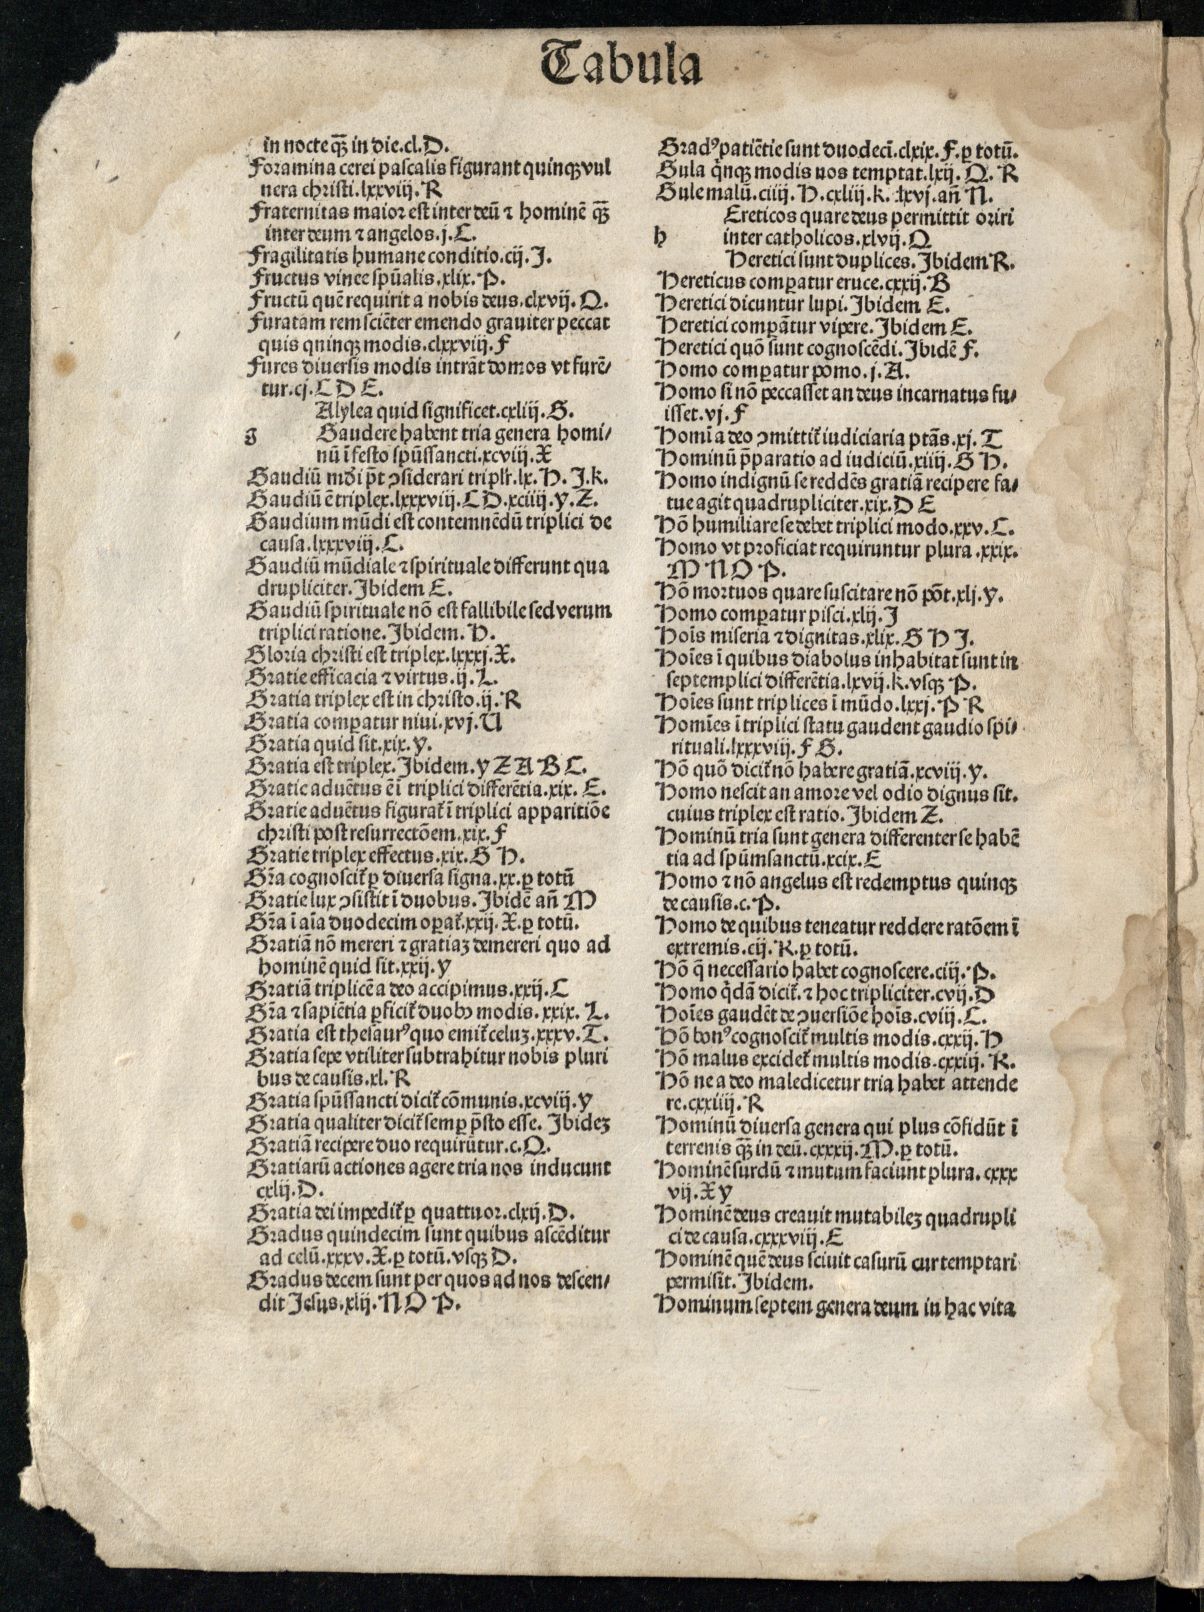 Tabula
in nocte qȝ̄ in die.cl.D.
Foramina cerei pascalis figurant quinqȝ vul
nera christi.lxxviij.R
Fraternitas maior est inter deū ⁊ hominē qȝ̄
inter deum ⁊ angelos.j.C.
Fragilitatis humane conditio.cij.I.
Fructus vinee spūalis.xlix.P.
Fructū quē requirit a nobis deus.clxvij.Q.
Furatam rem sciēter emendo grauiter peccat
quis quinqȝ modis.clxxviij.F
Fures diuersis modis intrāt domos vt furē/
tur.cj.C D E.
Alylea quid significet.cxliij.G.
g Gaudere habent tria genera homi/
nū ī festo spūssancti.xcviij.X
Gaudiū mūdi pōt ꝯsiderari triplr̄.lx.H.I.k.
Gaudiū ē triplex.lxxxviij.C D.xciiij.y.Z.
Gaudium mūdi est contemnēdū triplici de
causa.lxxxviij.C.
Gaudiū mūdiale ⁊ spirituale differunt qua
drupliciter.Ibidem E.
Gaudiū spirituale nō est fallibile sed verum
triplici ratione.Ibidem.H.
Gloria christi est triplex.lxxxj.X.
Gratie efficacia ⁊ virtus.ij.L.
Gratia triplex est in christo.ij.R
Gratia comꝑatur niui.xvj.U
Gratia quid sit.xix.y.
Gratia est triplex.Ibidem.y Z A B C.
Gratie aduētus ē ī triplici differētia.xix.E.
Gratie aduētus figurat᷑ ī triplici apparitiōe
christi post resurrectōem.xix.F
Gratie triplex effectus.xix.G H.
Gr̄a cognoscit᷑ ꝑ diuersa signa.xx.ꝑ totū
Gratie lux ꝯsistit ī duobus.Ibidē an̄ M
Gr̄a ī aīa duodecim oꝑat᷑.xxij.X.ꝑ totū.
Gratiā nō mereri ⁊ gratiaȝ demereri quo ad
hominē quid sit.xxij.y
Gratiā triplicē a deo accipimus.xxij.C
Gr̄a ⁊ sapiētia ꝑficit᷑ duobꝰ modis.xxix.L.
Gratia est thesaurꝰ quo emit᷑ celuȝ.xxxv.T.
Gratia sepe vtiliter subtrahitur nobis pluri
bus de causis.xl.R
Gratia spūssancti dicit᷑ cōmunis.xcviij.y
Gratia qualiter dicit᷑ semꝑ p̄sto esse. Ibideȝ
Gratiā recipere duo requirūtur.c.Q.
Gratiarū actiones agere tria nos inducunt
cxlij.D.
Gratia dei impedit᷑ ꝑ quattuor.clxij.D.
Gradus quindecim sunt quibus ascēditur
ad celū.xxxv.X.ꝑ totū.vsqȝ D.
Gradus decem sunt per quos ad nos descen/
dit Jesus.xlij.N O P.
Gradꝰ patiētie sunt duodecī.clxix.F.ꝑ totū.
Gula qͥnqȝ modis nos temptat.lxij.Q.R
Gule malū.ciiij.H.cxliij.k.lxvj.an̄ N.
Ereticos quare deus permittit oriri
h inter catholicos.xlvij.Q
Heretici sunt duplices.Ibidem R.
Hereticus comꝑatur eruce.cxxij.B
Heretici dicuntur lupi.Ibidem E.
Heretici comꝑātur vipere.Ibidem E.
Heretici quō sunt cognoscēdi.Ibidē F.
Homo comꝑatur pomo.j.A.
Homo si nō peccasset an deus incarnatus fu/
isset.vj.F
Homī a deo ꝯmittit᷑ iudiciaria ptās.xj.T
Hominū p̄paratio ad iudiciū.xiiij.G H.
Homo indignū se reddēs gratiā recipere fa/
tue agit quadrupliciter.xix.D E
Hō humiliare se debet triplici modo.xxv.C.
Homo vt proficiat requiruntur plura.xxix.
M N O P.
Hō mortuos quare suscitare nō pōt.xlj.y.
Homo comꝑatur pisci.xlij.I
Hoīs miseria ⁊ dignitas.xlix.G H I.
Hoīes ī quibus diabolus inhabitat sunt in
septemplici differētia.lxvij.k.vsqȝ P.
Hoīes sunt triplices ī mūdo.lxxj.P R
Homīes ī triplici statu gaudent gaudio spi/
rituali.lxxxviij.F G.
Hō quō dicit᷑ nō habere gratiā.xcviij.y.
Homo nescit an amore vel odio dignus sit.
cuius triplex est ratio.Ibidem Z.
Hominū tria sunt genera differenter se habē
tia ad spūmsanctū.xcix.E
Homo ⁊ nō angelus est redemptus quinqȝ
de causis.c.P.
Homo de quibus teneatur reddere ratōem ī
extremis.cij.R.ꝑ totū.
Hō q̄ necessario habet cognoscere.ciij.P.
Homo qͥdā dicit᷑. ⁊ hoc tripliciter.cvij.D
Hoīes gaudēt de ꝯuersiōe hoīs.cviij.C.
Hō bonꝰ cognoscit᷑ multis modis.cxxij.H
Hō malus excidet᷑ multis modis.cxxiij.R.
Hō ne a deo maledicetur tria habet attende
re.cxxiiij.R
Hominū diuersa genera qui plus cōfidūt ī
terrenis qȝ̄ in deū.cxxxij.M.ꝑ totū.
Hominē surdū ⁊ mutum faciunt plura.cxxx
vij.X y
Hominē deus creauit mutabileȝ quadrupli
ci de causa.cxxxviij.E
Hominē quē deus sciuit casurū cur temptari
permisit.Ibidem.
Hominum septem genera deum in hac vita